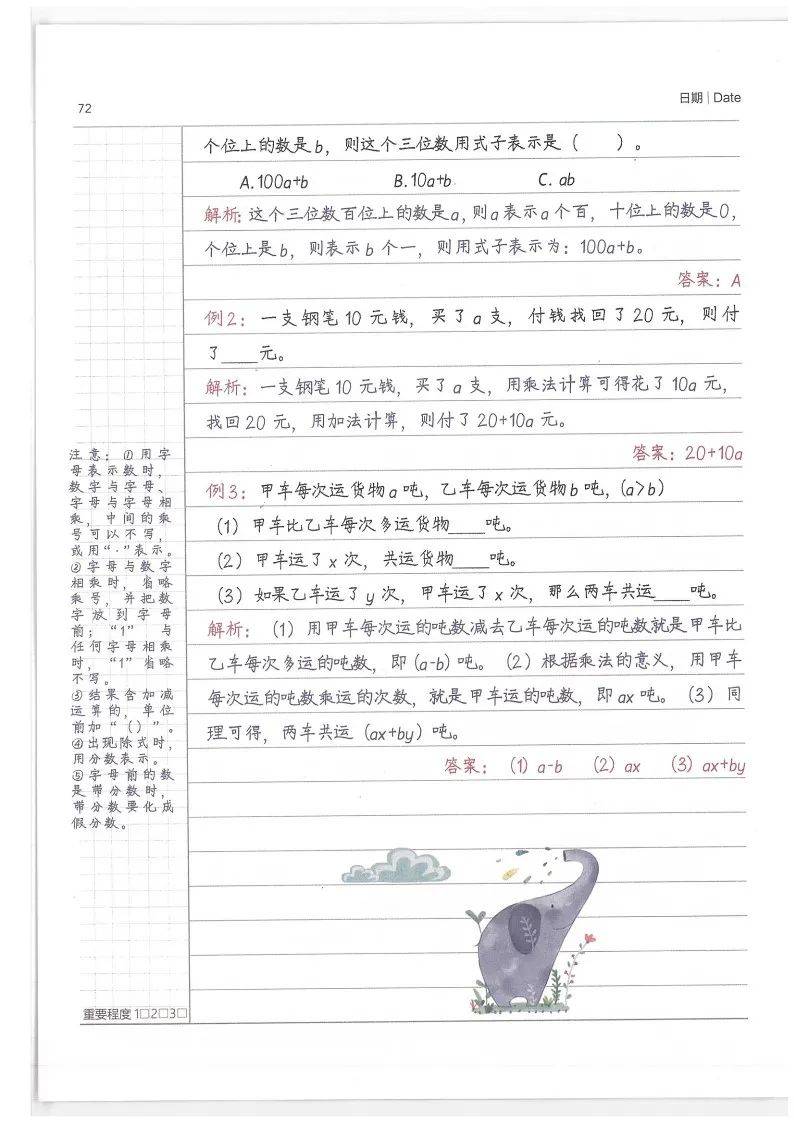 72
日期 | Date
个位上的数是b，则这个三位数用式子表示是（　　）。
A.100a+b　　B.10a+b　　C. ab
解析：这个三位数百位上的数是a，则a表示a个百，十位上的数是0，
个位上是b，则表示b个一，则用式子表示为：100a+b。
答案：A
例2：一支钢笔10元钱，买了a支，付钱找回了20元，则付
了____元。
解析：一支钢笔10元钱，买了a支，用乘法计算可得花了10a元，
找回20元，用加法计算，则付了20+10a元。
答案：20+10a
例3：甲车每次运货物a吨，乙车每次运货物b吨，(a>b)
（1）甲车比乙车每次多运货物____吨。
（2）甲车运了x次，共运货物____吨。
（3）如果乙车运了y次，甲车运了x次，那么两车共运____吨。
解析：（1）用甲车每次运的吨数减去乙车每次运的吨数就是甲车比
乙车每次多运的吨数，即(a-b)吨。（2）根据乘法的意义，用甲车
每次运的吨数乘运的次数，就是甲车运的吨数，即ax吨。（3）同
理可得，两车共运（ax+by）吨。
答案：（1）a-b　（2）ax　（3）ax+by
注意：①用字
母表示数时，
数字与字母、
字母与字母相
乘，中间的乘
号可以不写，
或用“·”表示。
②字母与数字
相乘时，省略
乘号，并把数
字放到字母
前；“1”与
任何字母相乘
时，“1”省略
不写。
③结果含加减
运算的，单位
前加“（）”。
④出现除式时，
用分数表示。
⑤字母前的数
是带分数时，
带分数要化成
假分数。
重要程度 1□2□3□